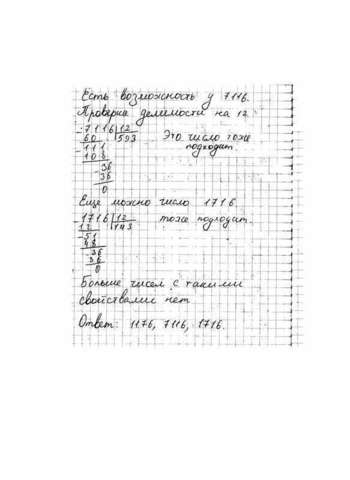 Есть возможность у 7116.
Проверка делимости на 12
-7116|12
60 |593 Это число тоже
-111 подходит.
108
-36
36
0
Еще можно число 1716.
-1716|12 тоже подходит.
12 |143
-51
48
-36
36
0
Больше чисел с такими
свойствами нет
Ответ: 1176, 7116, 1716.